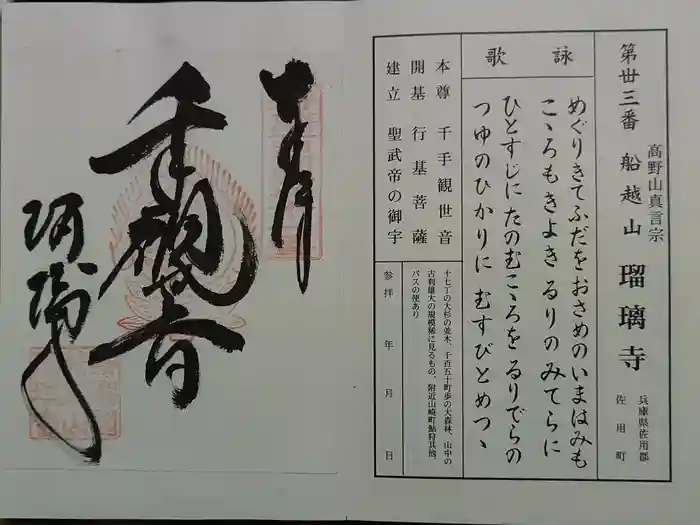 第丗三番 船越山 瑠璃寺
高野山真言宗
兵庫県佐用郡
佐用町
詠歌
めぐりきてふだをおさめのいまはみも
こゝろもきよきるりのみてらに
ひとすじにたのむこゝろをるりでらの
つゆのひかりにむすびとめつゝ
本尊 千手観世音
開基 行基菩薩
建立 聖武帝の御宇
十七丁の大杉の並木、千百五十町歩の大森林、山中の
古刹雄大の規模稀に見るもの、附近山崎町鮎狩其他、
バスの便あり
参拝 年 月 日
奉拝
千手観音